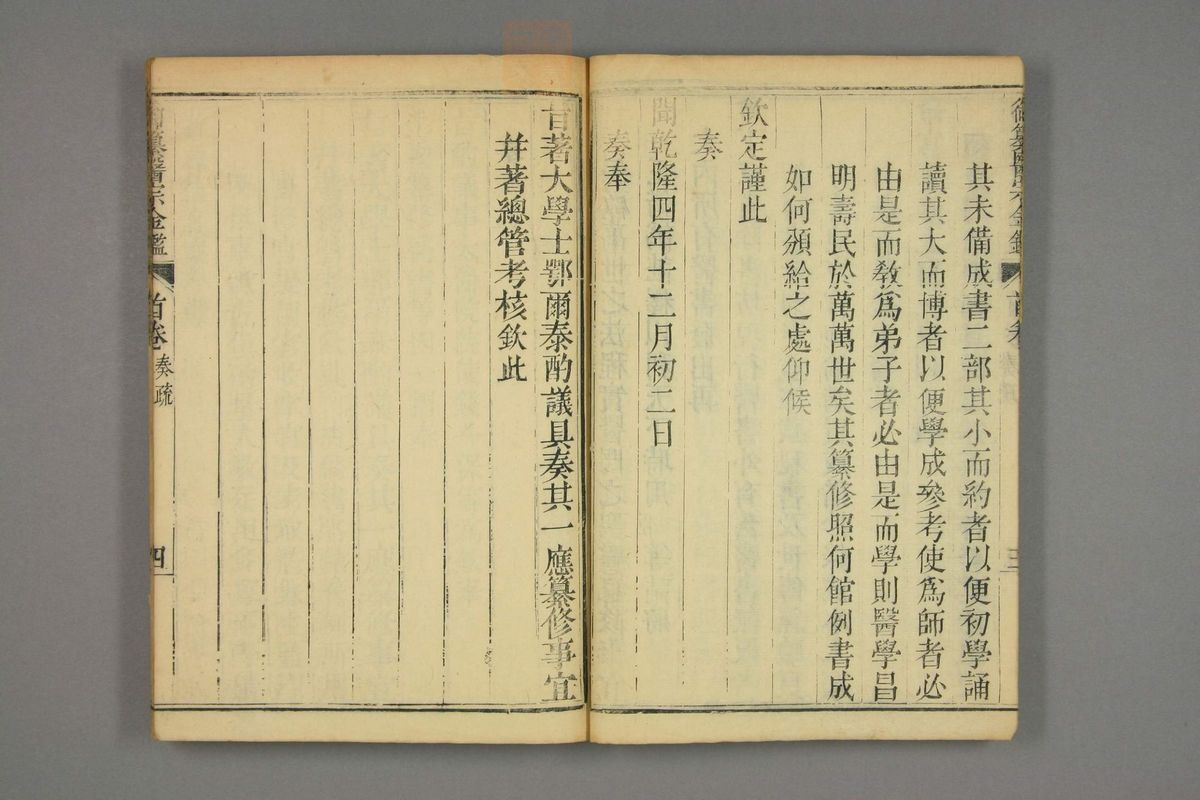 其未備成書二部其小而約者以便初學誦
讀其大而博者以便學成參考使爲師者必
由是而教爲弟子者必由是而學則醫學昌
明壽民於萬萬世矣其纂修照何館例書成
如何頒給之處仰候
欽定謹此
奏
聞乾隆四年十二月初二日
奏奉
旨著大學士鄂爾泰酌議具奏其一應纂修事宜
并著總管考核欽此
御纂醫宗金鑑
首卷
奏疏
四